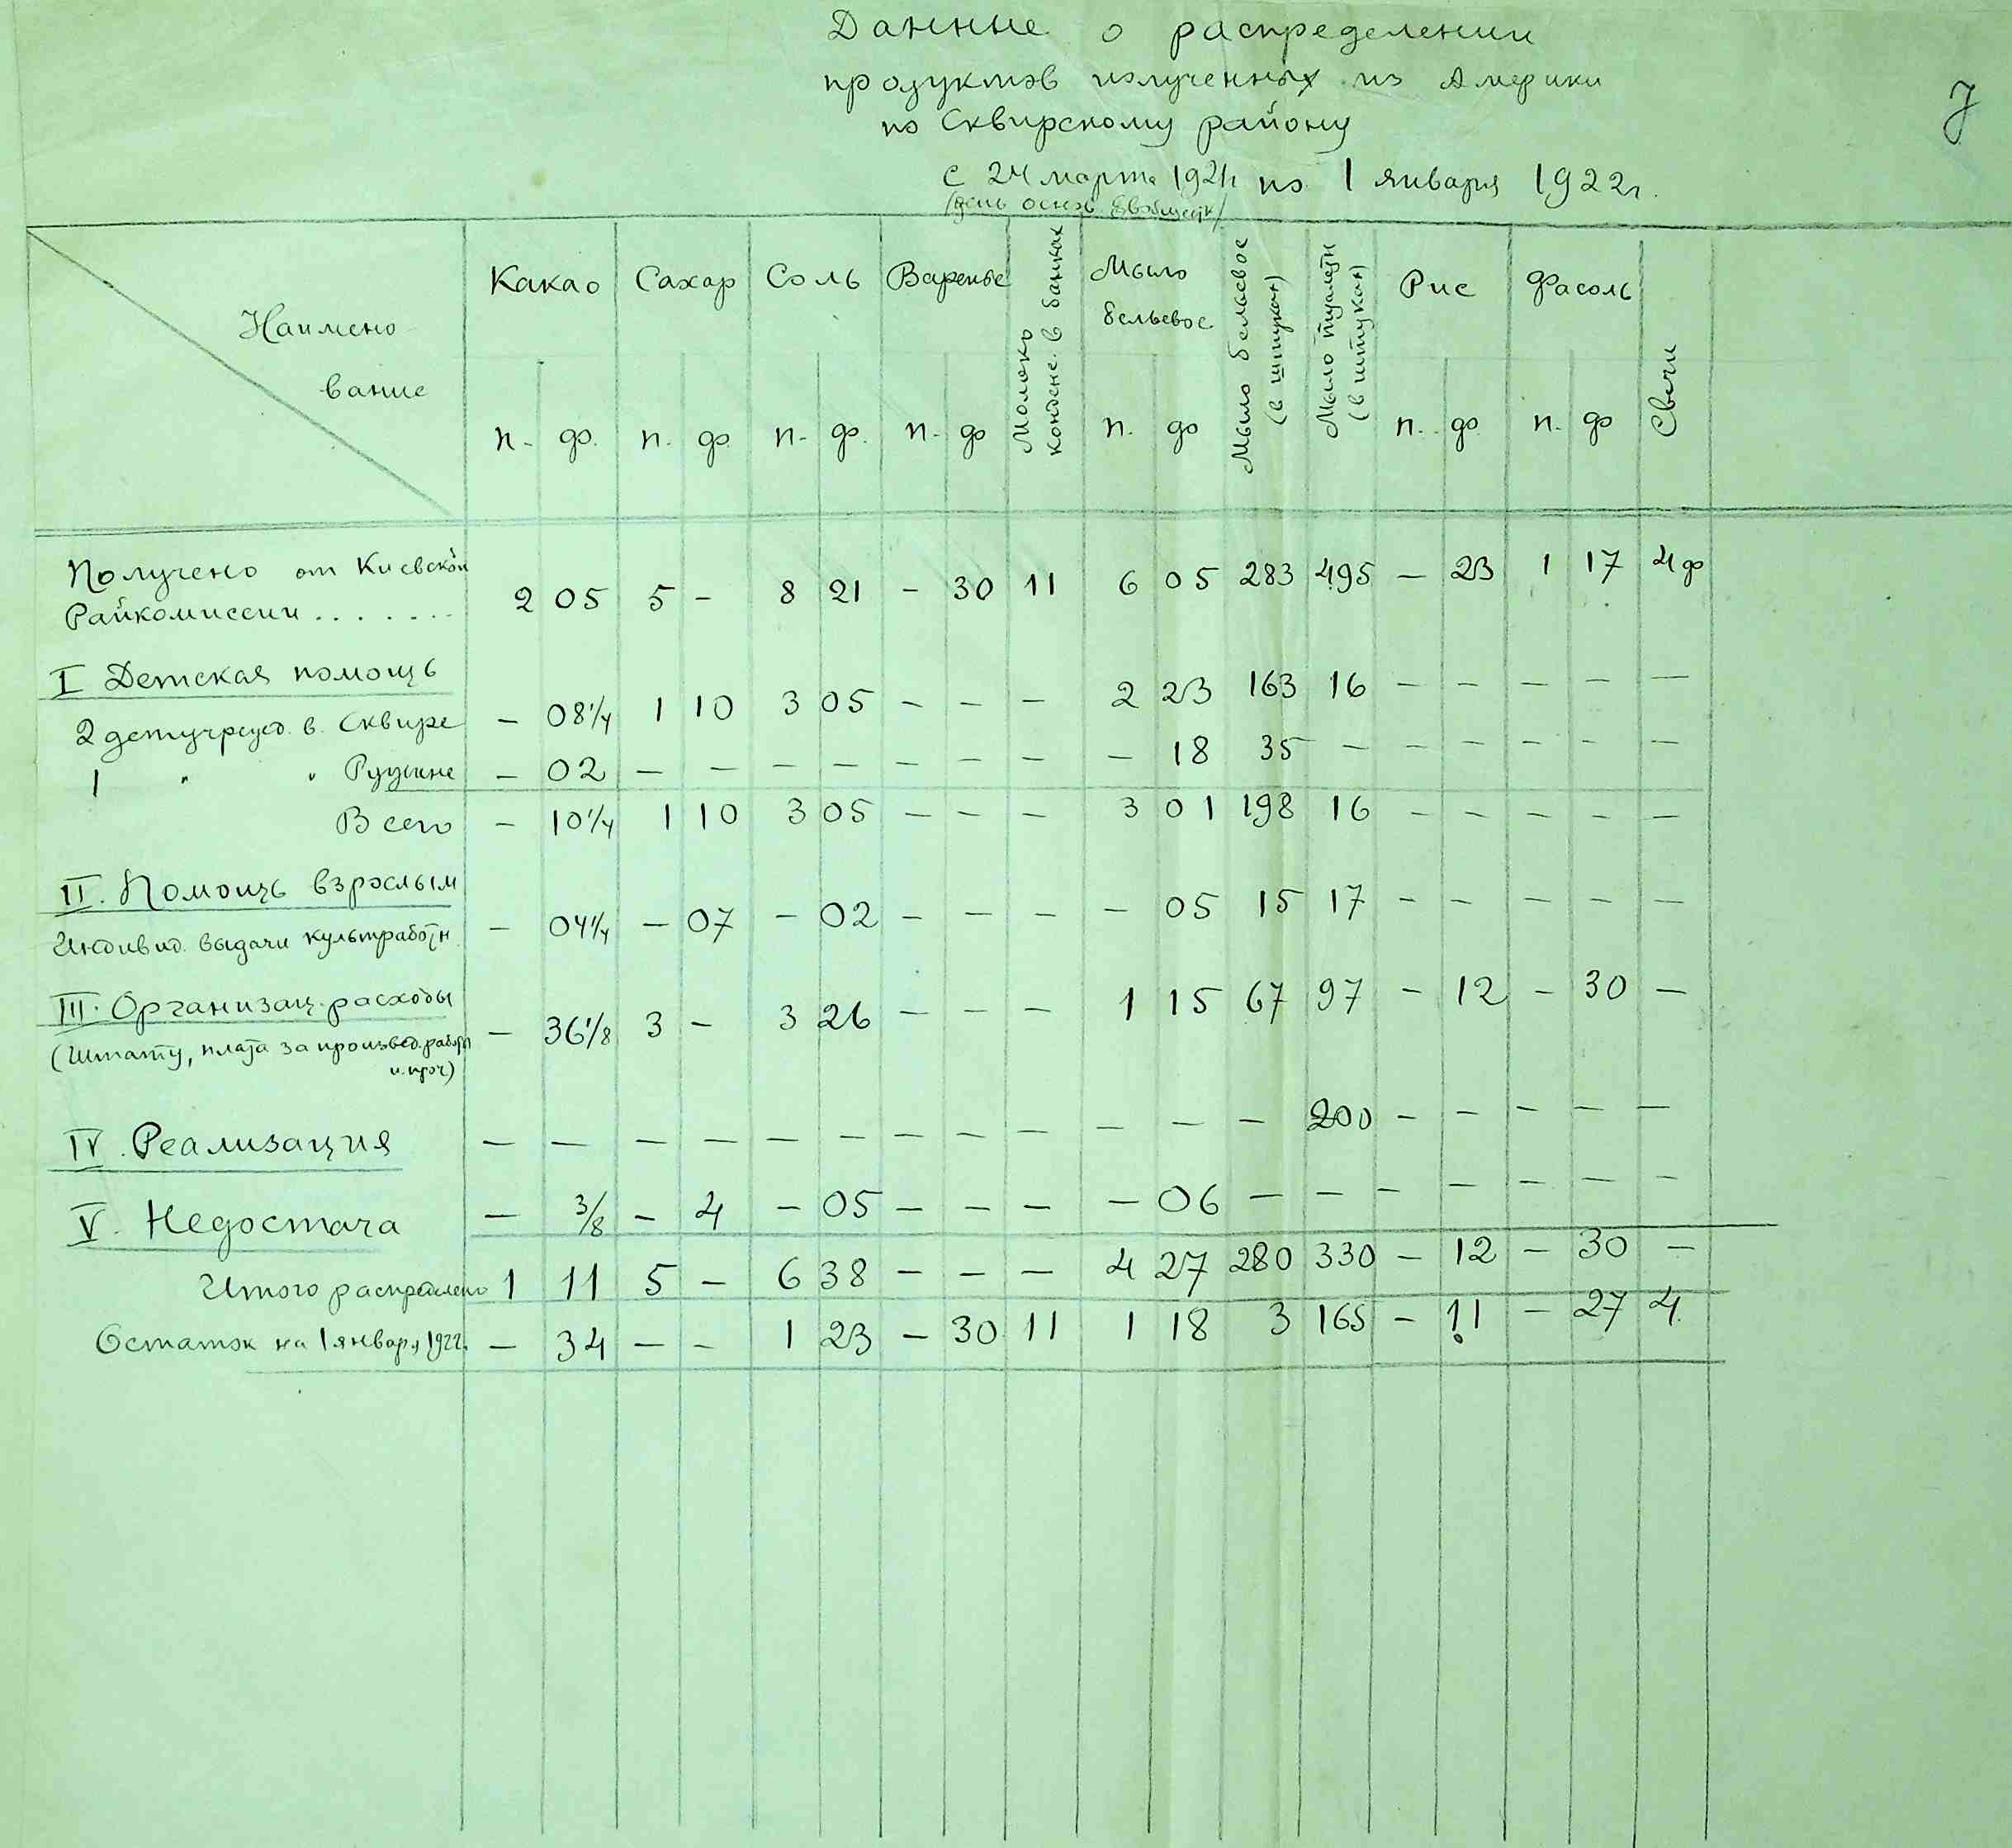 Данные о распределении
продуктов полученных из Америки
по Сквирскому району
с 24 марта 1921г по 1 января 1922г.
/день основ.
7
Наимено
вание
Какао Сахар Соль Варенье Молоко конденс. в банках Мыло бельевое Мыло бельевое (в штуках) Мыло туалетн (в штуках) Рис Фасоль Свечи
п. ф. п. ф. п. ф. п. ф. п. ф. п. ф. п. ф.
Получено от Киевской
Райкомиссии . . . . . . . 2 05 5 - 8 21 - 30 11 6 05 283 495 - 23 1 17 4 ф
I Детская помощь
2 детучрежд. в. Сквире - 08 1/4 1 10 3 05 - - - 2 23 163 16 - - - - -
1 " " Ружине - 02 - - - - - - - - 18 35 - - - - - -
Всего - 10 1/4 1 10 3 05 - - - 3 01 198 16 - - - - -
II. Помощь взрослым
Индивид. выдачи культработн. - 04 1/4 - 07 - 02 - - - - 05 15 17 - - - - -
III. Организац. расходы
(Штату, плата за произвед. работы - 36 1/8 3 - 3 26 - - - 1 15 67 97 - 12 - 30 -
и. проч)
IV. Реализация - - - - - - - - - - - - 200 - - - - -
V. Недостача - 3/8 - 4 - 05 - - - - 06 - - - - - - -
Итого распределено 1 11 5 - 6 38 - - - 4 27 280 330 - 12 - 30 -
Остаток на 1 января 1922г. - 34 - - 1 23 - 30 11 1 18 3 165 - 11 - 27 4